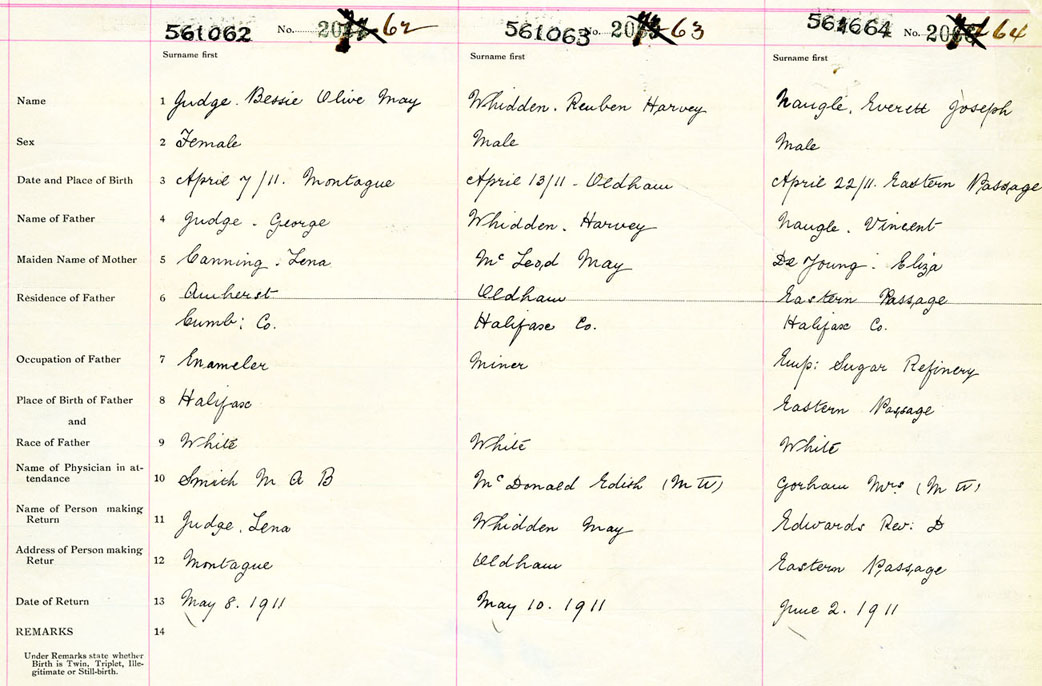 561062 No. 62 561063 No. 63 No. 64
Surname first Surname first Surname first
Name 1 Judge. Bessie Olive May Whidden. Reuben Harvey Naugle. Everett Joseph
Sex 2 Female Male Male
Date and Place of Birth 3 April 7/11. Montague April 13/11 - Oldham April 22/11. Eastern Passage
Name of Father 4 Judge. George Whidden. Harvey Naugle. Vincent
Maiden Name of Mother 5 Canning. Lena Mc Leod May De Young. Eliza
Residence of Father 6 Amherst Oldham Eastern Passage
Cumb: Co. Halifax Co. Halifax Co.
Occupation of Father 7 Enameler Miner Emp: Sugar Refinery
Place of Birth of Father 8 Halifax Eastern Passage
and
Race of Father 9 White White White
Name of Physician in at-
tendance 10 Smith M A B McDonald Edish (M W) Gorham Mrs. (M W)
Name of Person making
Return 11 Judge. Lena Whidden May Edwards Rev: D
Address of Person making
Retur 12 Montague Oldham Eastern Passage
Date of Return 13 May 8. 1911 May 10. 1911 June 2. 1911
REMARKS 14
Under Remarks state whether
Birth is Twin, Triplet, Ille-
gitimate or Still-birth.